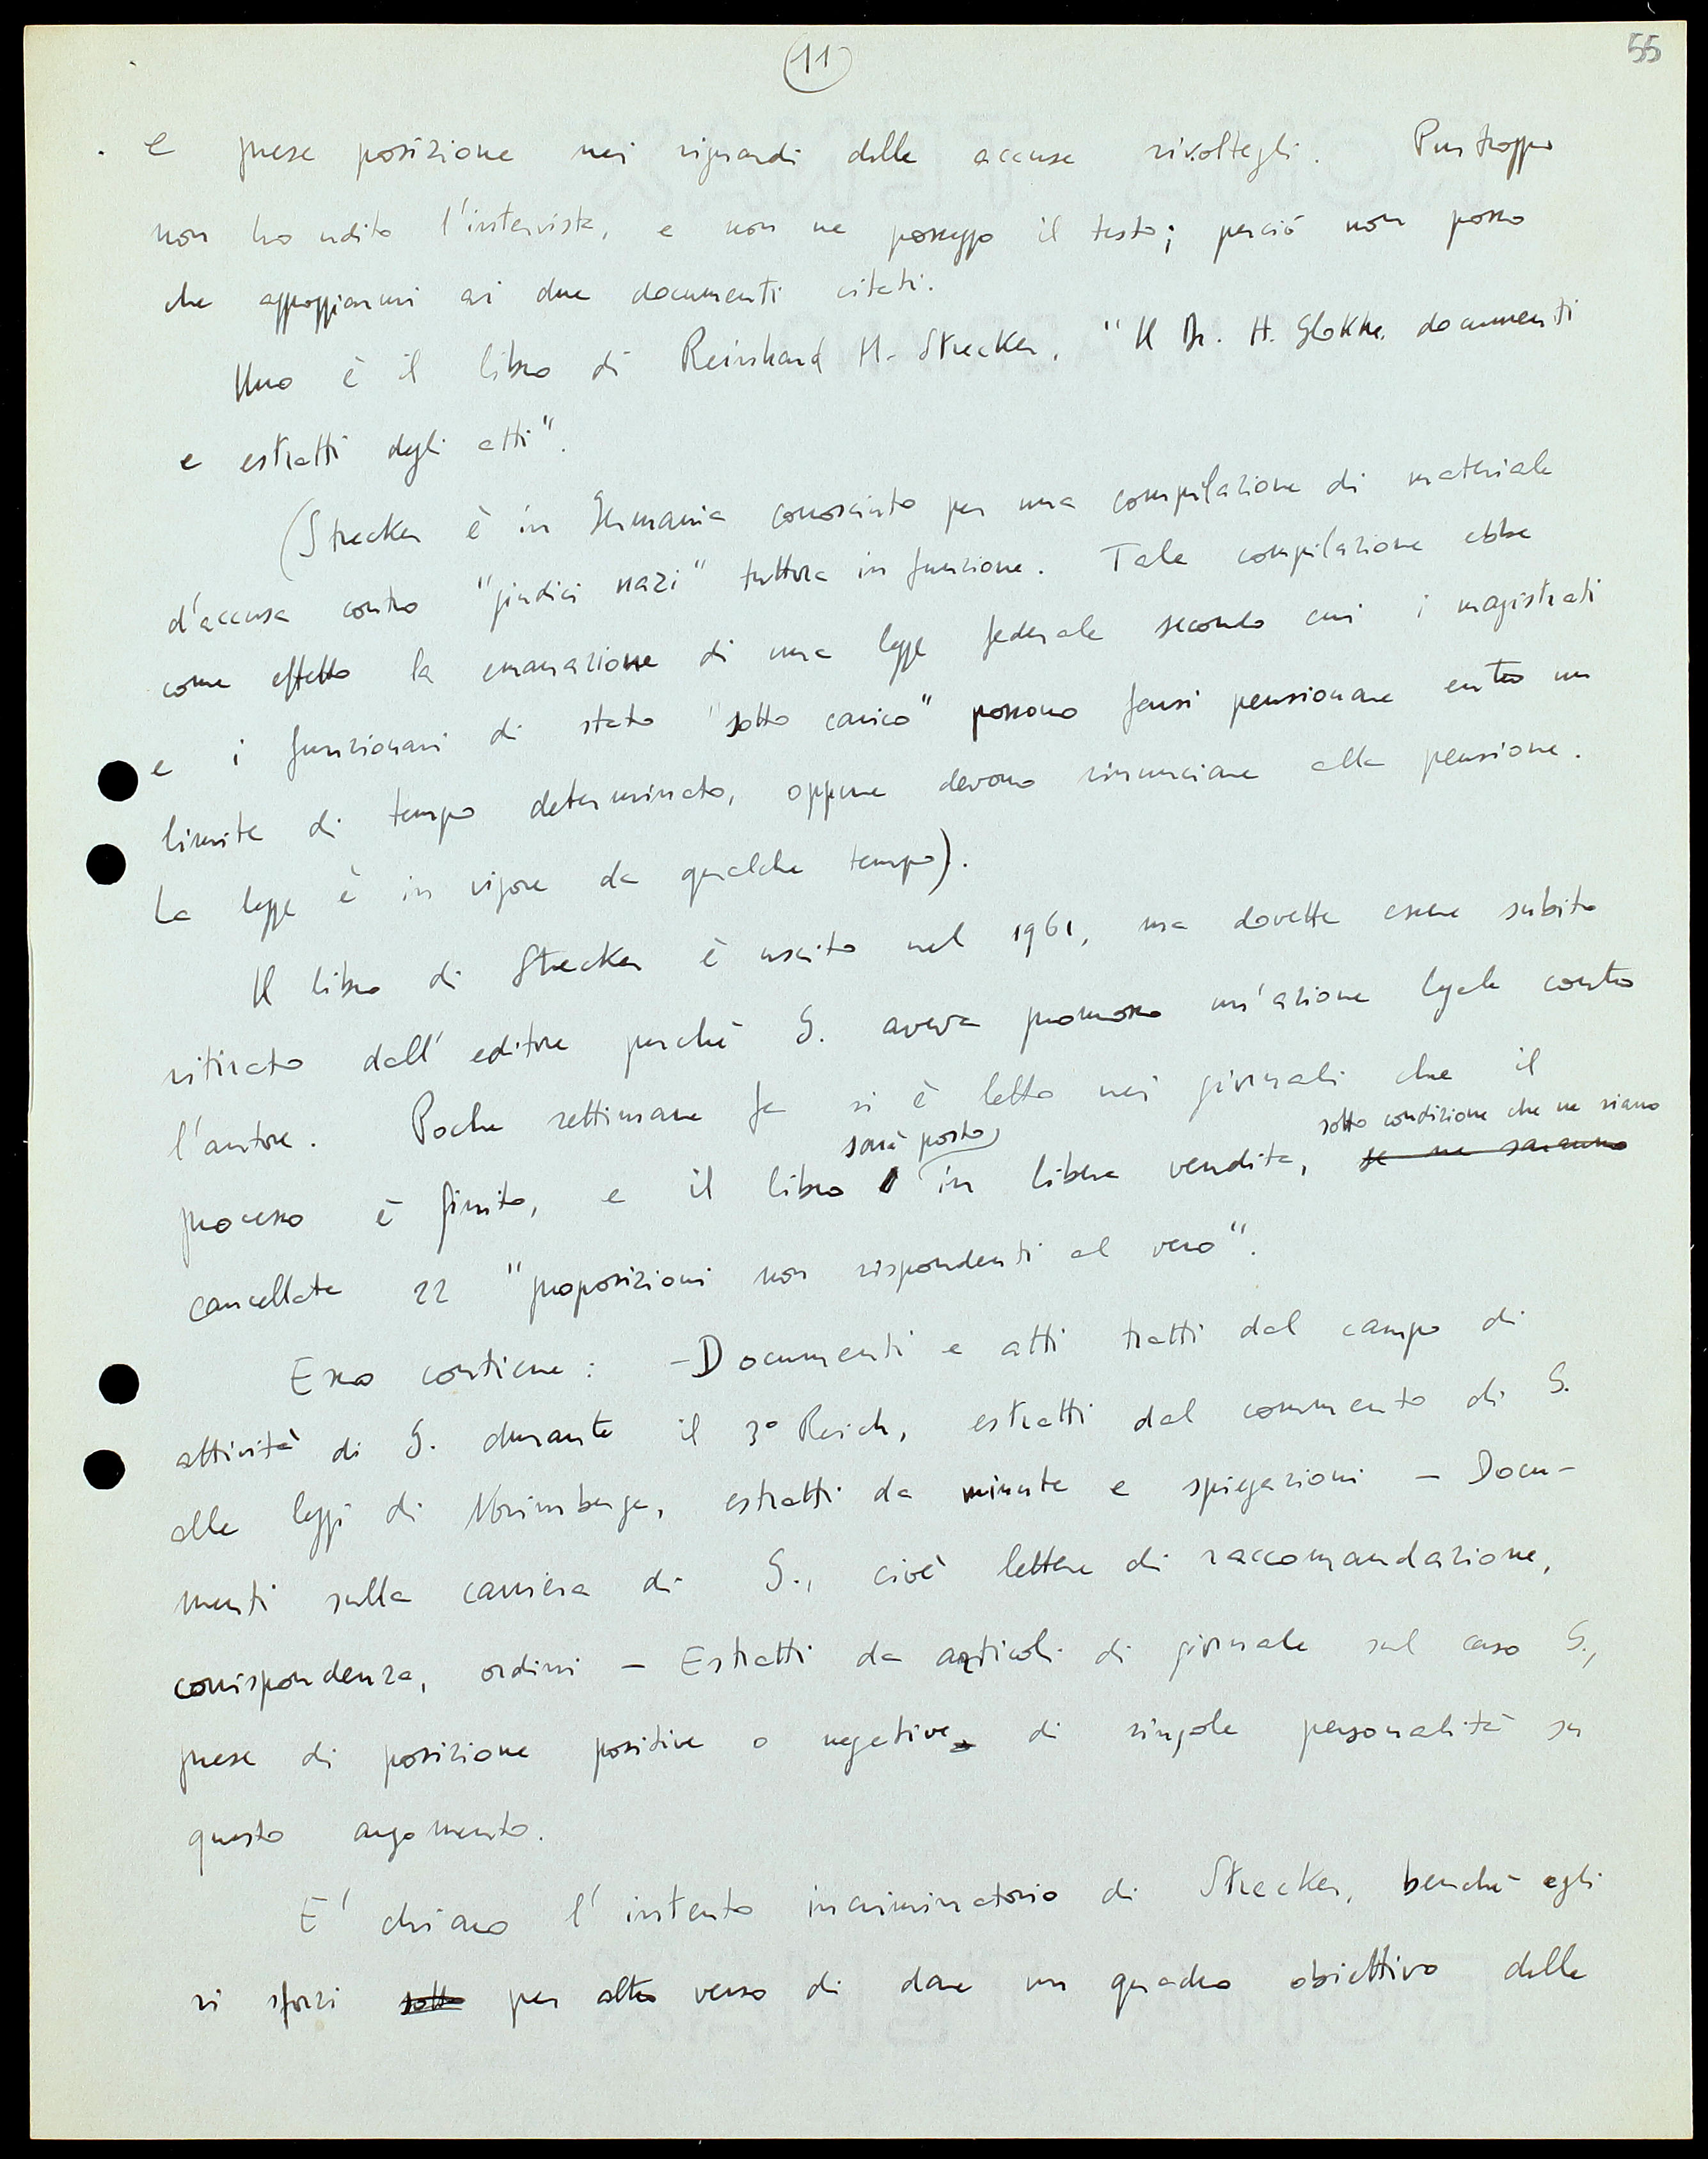 11
55
e prese posizione nei riguardi delle accuse rivoltegli. Purtroppo
non ho udito l'intervista, e non ne posseggo il testo; perciò non posso
che appoggiarmi ai due documenti citati.
Uno è il libro di Reinhard H. Strecker, "Il Dr. H. Globke, documenti
e estratti degli atti".
(Strecker è in Germania conosciuto per una compilazione di materiale
d'accusa contro "giudici nazi" tuttora in funzione. Tale compilazione ebbe
come effetto la emanazione di una legge federale secondo cui i magistrati
e i funzionari di stato "sotto carico" possono farsi pensionare entro un
limite di tempo determinato, oppure devono rinunciare alla pensione.
La legge è in vigore da qualche tempo).
Il libro di Strecker è uscito nel 1961, ma dovette essere subito
ritirato dall'editore perchè G. aveva promosso un'azione legale contro
l'autore. Poche settimane fa si è letto nei giornali che il
sarà posto sotto condizione che ne siano
processo è finito, e il libro in libera vendita, se ne saranno
cancellate 22 "proposizioni non rispondenti al vero".
Esso contiene: - Documenti e atti tratti dal campo di
attività di G. durante il 3° Reich, estratti dal commento di G.
alle leggi di Norimberga, estratti da minute e spiegazioni - Docu-
menti sulla carriera di G., cioè lettere di raccomandazione,
corrispondenza, ordini - Estratti da articoli di giornale sul caso G.,
prese di posizione positive o negative di singole personalità su
questo argomento.
E' chiaro l'intento incriminatorio di Strecker, benchè egli
si sforzi sotto per altro verso di dare un quadro obiettivo delle